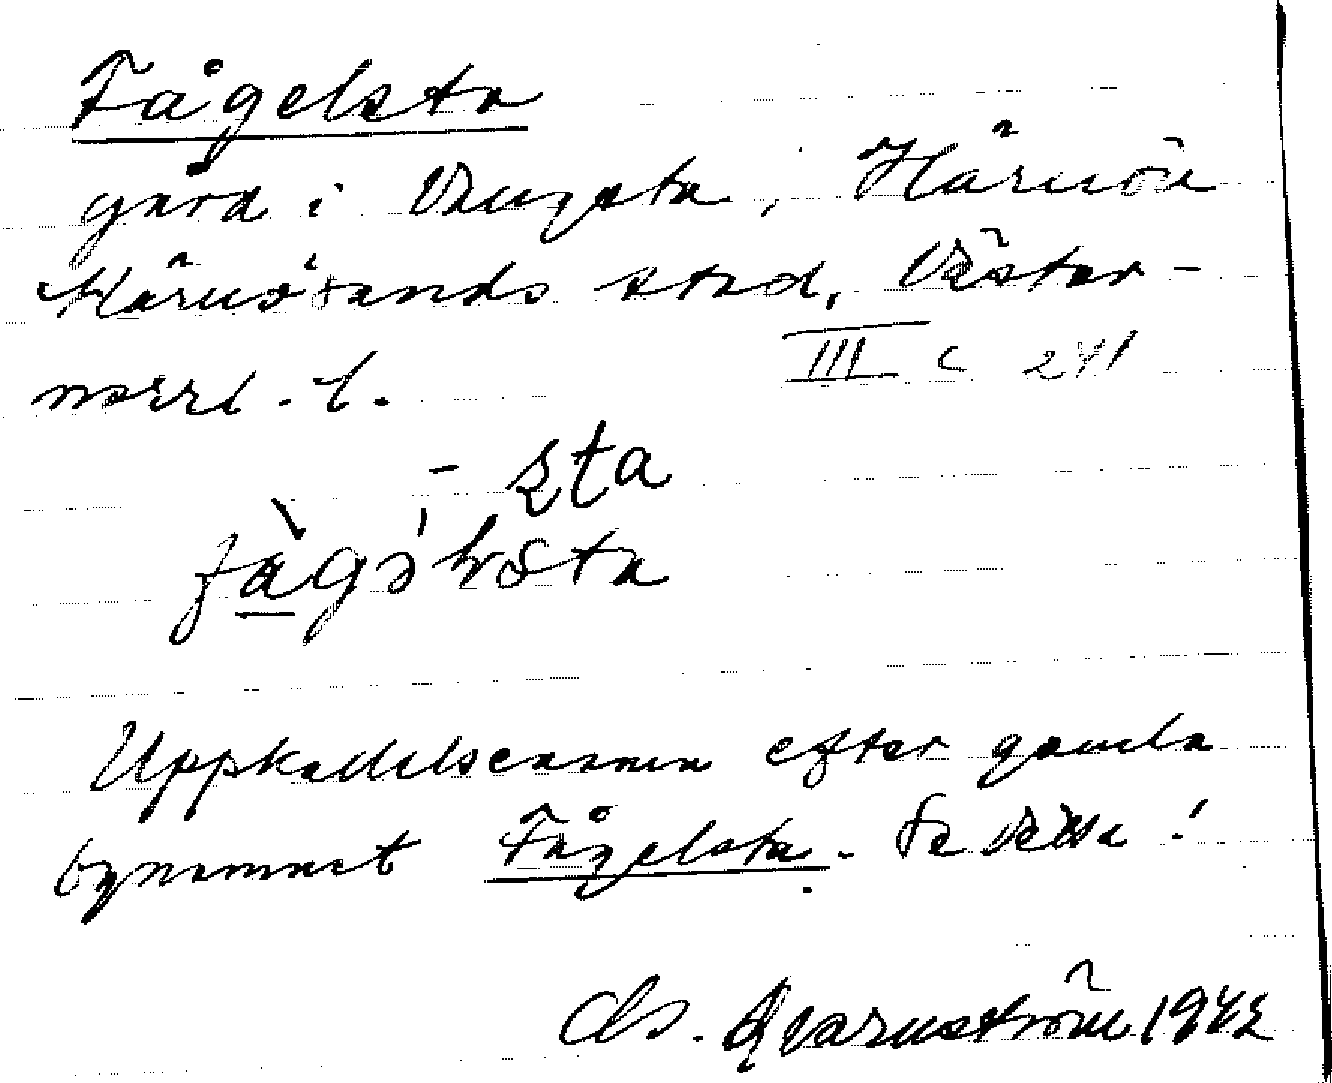 Fågelsta
gård i Vangsta, Härnön
Härnösands stad, Väster-
norrl. l.
III C 241
- sta
Uppkallelsenamn efter gamla
bynamnet Fågelsta. Se detta!
Chs. Qvarnström 1942